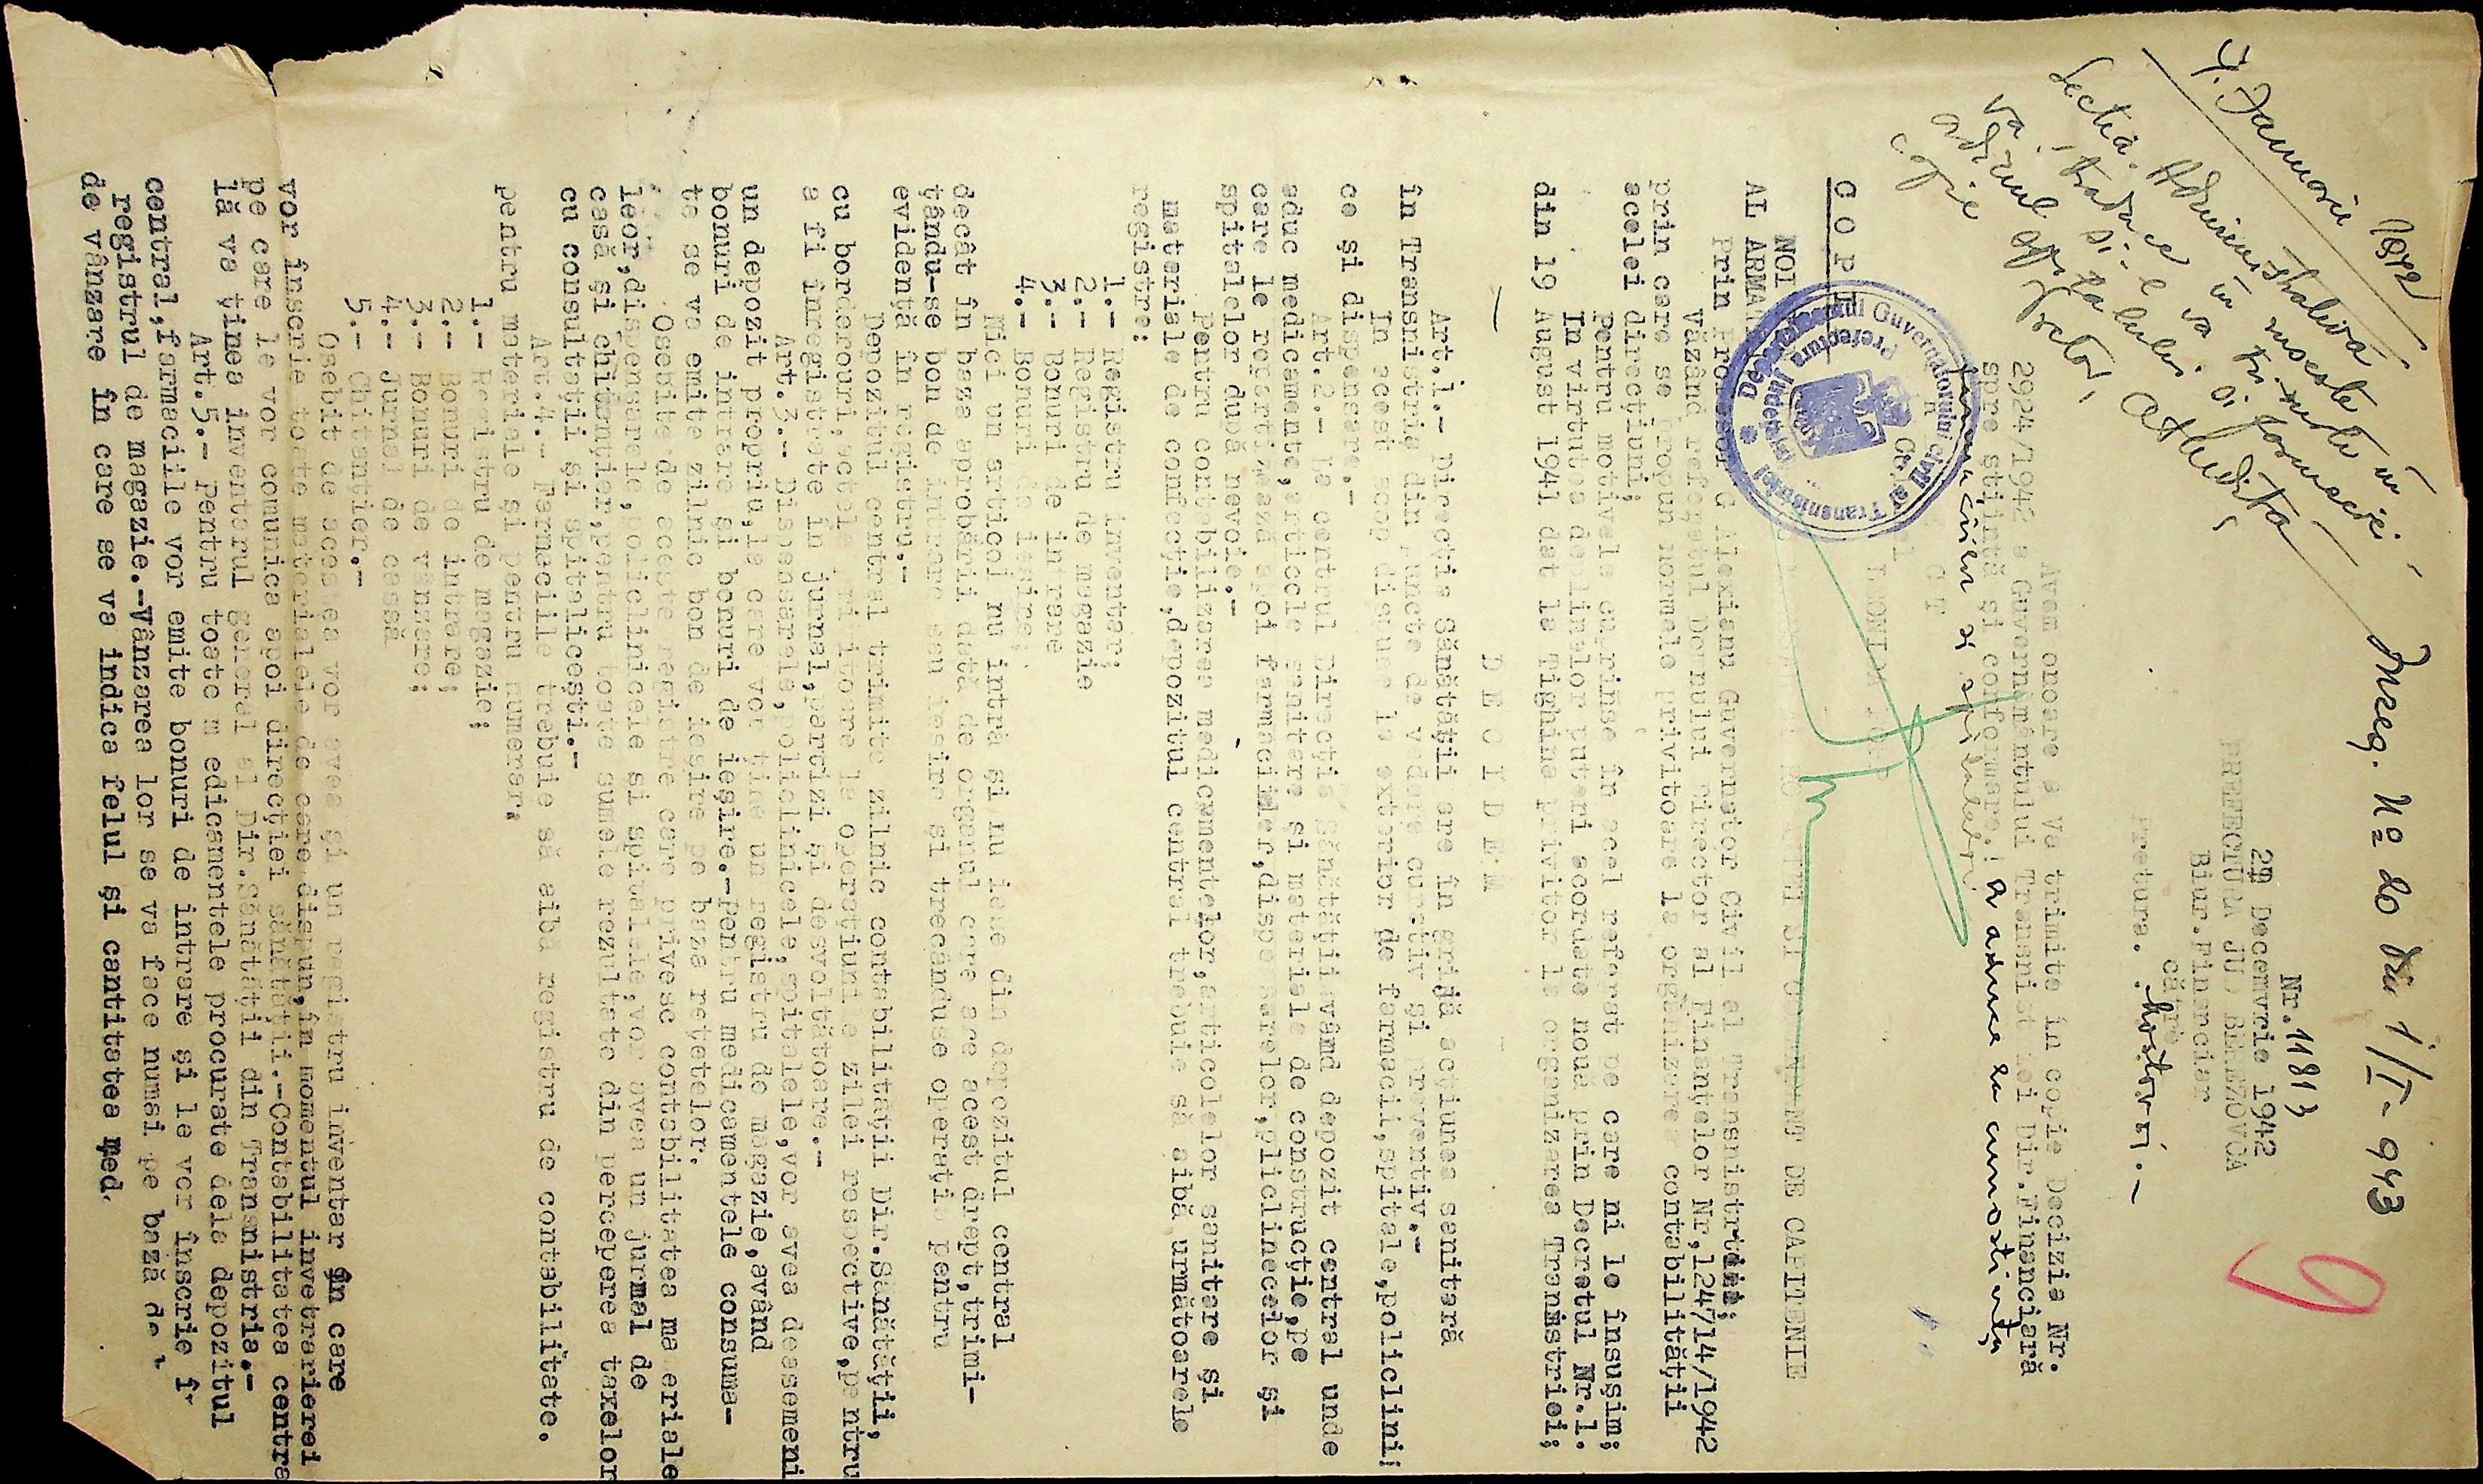 Inreg. No 20 din 1/I-943
9
4. Ianuarie 1942
Secția Administrativă
va traduce în rusește în
și-l va trimite
și farmaciei
copie
Pretor,
Nr.11813
29 Decemvrie 1942
PREFECTURA JUD BEREZOVCA
Biur.Financiar
către
Pretura. Mostovoi.-
Avem onoare a Vă trimite în copie Decizia Nr.
2924/1942 a Guvernământului Transnistriei Dir.Financiară
spre știință și conformare. a aduce la cunoștința
farmaciilor și spitalelor
COPIE
Guvernatorului civil al Transnistriei
Prefectura Județului
NOI
AL ARMATEI DE CAPITENIE
Prin Profesor G Alexianu Guvernator Civil al Transnistriei;
Văzând referatul Domnului Director al Finanțelor Nr,124714/1942
prin care se propun normele privitoare la organizarea contabilității
acelei direcțiuni;
Pentru motivele cuprinse în acel referat pe care ni le însușim;
In virtutea deplinelor puteri acordate nouă prin Decretul Nr.1.
din 19 August 1941 dat la Tighina privitor la organizarea Transmistriei;
D E C I D E M
Art.1.- Direcția Sănătății are în grijă acțiunea sanitară
în Transnistria din puncte de vedere curativ și preventiv.-
In acest scop dispune la exterior de farmacii,spitale,policlini
ce și dispensare.-
Art.2.- La centrul Direcția Sănătății având depozit central unde
aduc medicamente,articole sanitare și materiale de construcție,pe
care le repartizează apoi farmaciilor,dispensarelor,policlinecelor și
spitalelor după nevoie.-
Pentru contabilizarea medicamentelor,articolelor sanitare și
materiale de confecție,depozitul central trebuie să aibă,următoarele
registre:
1.- Registru inventar;
2.- Registru de magazie
3.- Bonuri de intrare
4.- Bonuri de ieșire;
Nici un articol nu intră și nu iese din depozitul central
decât în baza aprobării dată de organul care are acest drept,trimi-
țându-se bon de intrare sau ieșire și trecânduse operația pentru
evidență în registru.-
Depozitul central trimite zilnic contabilității Dir.Sănătății,
cu borderouri,actele privitoare la operațiunile zilei respective,pentru
a fi înregistrate in jurnal,partizi și desvoltătoare.-
Art.3.- Dispensarele,policlinicele,spitalele,vor avea deasemeni
un depozit propriu,la care vor ține un registru de magazie,având
bonuri de intrare și bonuri de ieșire.-Pentru medicamentele consuma-
te se va emite zilnic bon de ieșire pe baza rețetelor.
Osebite de aceste registre care privesc contabilitatea materiale
leor,dispensarele,policlinicele si spitalele,vor avea un jurmal de
casă și chitanțier,pentru toate sumele rezultate din perceperea taxelor
cu consultații și spitalicești.-
Art.4.- Farmaciile trebuie să aibă registru de contabilitate.
pentru materiale și pentru numerar.
1.- Registru de magazie;
2.- Bonuri de intrare;
3.- Bonuri de vânzare;
4.- Jurnal de cassă
5.- Chitanțier.-
Osebit de acestea vor avea și un registru inventar în care
vor înscrie toate materialele de care dispun,în momentul invetrarierei
pe care le vor comunica apoi direcției sănătății.-Contabilitatea centra
lă va ținea inventarul general al Dir.Sănătății din Transnistria.-
Art.5.- Pentru toate m edicamentele procurate dela depozitul
central,farmaciile vor emite bonuri de intrare și le vor înscrie în
registrul de magazie.-Vânzarea lor se va face numai pe bază de
de vânzare în care se va indica felul și cantitatea med.